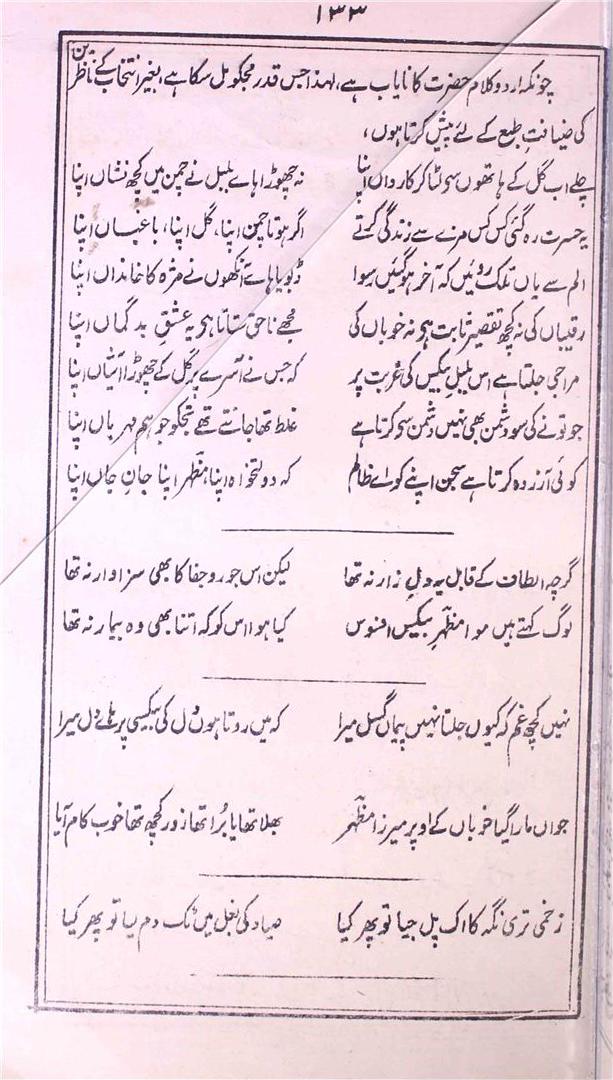 ۱۳۳
چونکہ اردو کلام حضرت کا نایاب ہے، لہذا جس قدر مجکو مل سکا ہے، بغیر انتخاب کے ناظرین
کی ضیافتِ طبع کے لئے پیش کرتا ہوں،
چلے اب گل کے ہاتھوں سی لٹا کر کارواں اپنا نہ چھوڑا ہاے بلبل نے چمن میں کچھ نشاں اپنا
یہ حسرت رہ گئی کس کس مزے سے زندگی کرتے اگر ہوتا چمن اپنا، گل اپنا، باغباں اپنا
الم سے یاں تلک روئیں کہ آخر ہو گئیں رسوا ڈبویا ہاے آنکھوں نے مژہ کا خانداں اپنا
رقیباں کی نہ کچھ تقصیر ثابت ہی نہ خوباں کی مجھے ناحق ستاتا ہی یہ عشقِ بد گماں اپنا
مرا جی جلتا ہے اس بلبلِ بیکس کی غربت پر کہ جس نے آسرے پر گل کے چھوڑا آشیاں اپنا
جو تو نے کی سو دشمن بھی نہیں دشمن سی کرتا ہے غلط تھا جانتے تھے تجکو جو ہم مہرباں اپنا
کوئی آزردہ کرتا ہے سجن اپنے کو اے ظالم کہ دولتخواہ اپنا مظہر اپنا جانِ جاں اپنا
گرچہ الطاف کے قابل یہ دلِ زار نہ تھا لیکن اس جور و جفا کا بھی سزاوار نہ تھا
لوگ کہتے ہیں موا مظہرِ بیکس افسوس کیا ہوا اس کو کہ اتنا بھی وہ بیمار نہ تھا
نہیں کچھ غم کہ کیوں جلتا نہیں پیماں گسل میرا کہ میں روتا ہوں دل کی بیکسی پر ہاے دل میرا
جواں مارا گیا خوباں کے اوپر میرزا مظہر بھلا تھا یا بُرا تھا زور کچھ تھا خوب کام آیا
زخمی تری نگہ کا اک پل جیا تو پھر کیا صیاد کی بغل میں ٹک دم لیا تو پھر کیا